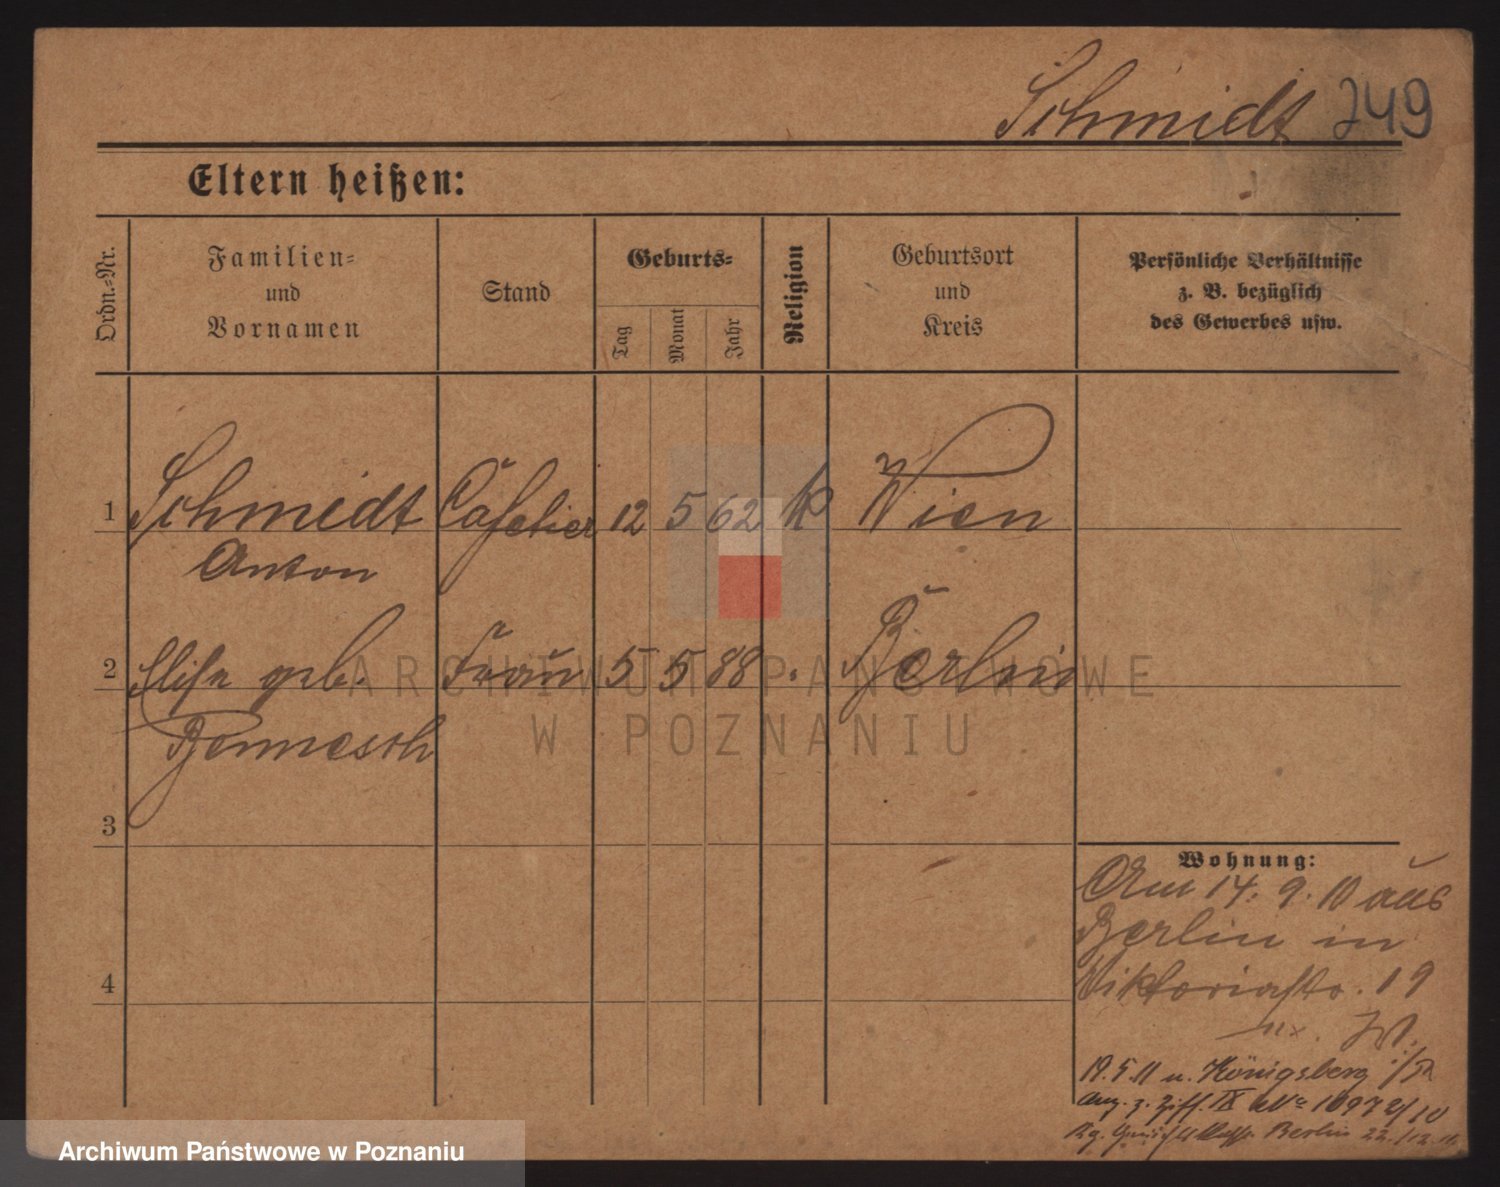 Schmidt 249
Eltern heißen:
Ordn.-Nr.
Familien-
und
Vornamen
Stand
Geburts-
Tag
Monat
Jahr
Religion
Geburtsort
und
Kreis
Persönliche Verhältnisse
z. B. bezüglich
des Gewerbes usw.
1 Schmidt Cafetier 12 5 62 k Wien
Anton
2 Elise geb. Frau 5 5 88 " Berlin
3
4
Wohnung:
Am 14. 9. 10 aus
Berlin in
Viktoriastr. 19
19.5.11 n. Königsberg i/P
Ang. z. Ziff. IX
Berlin
ARCHIWUM PAŃSTWOWE
W POZNANIU
Archiwum Państwowe w Poznaniu